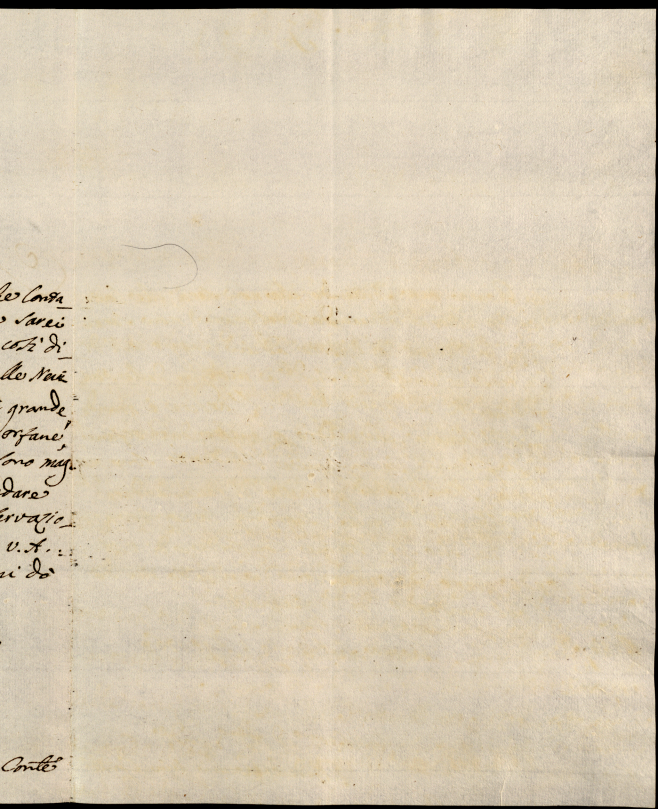 Conta_
sarei
così di_
lle Noti
grande
orfane,
loro mag_
dare
ervazio_
V. A.
ni dò
Conte